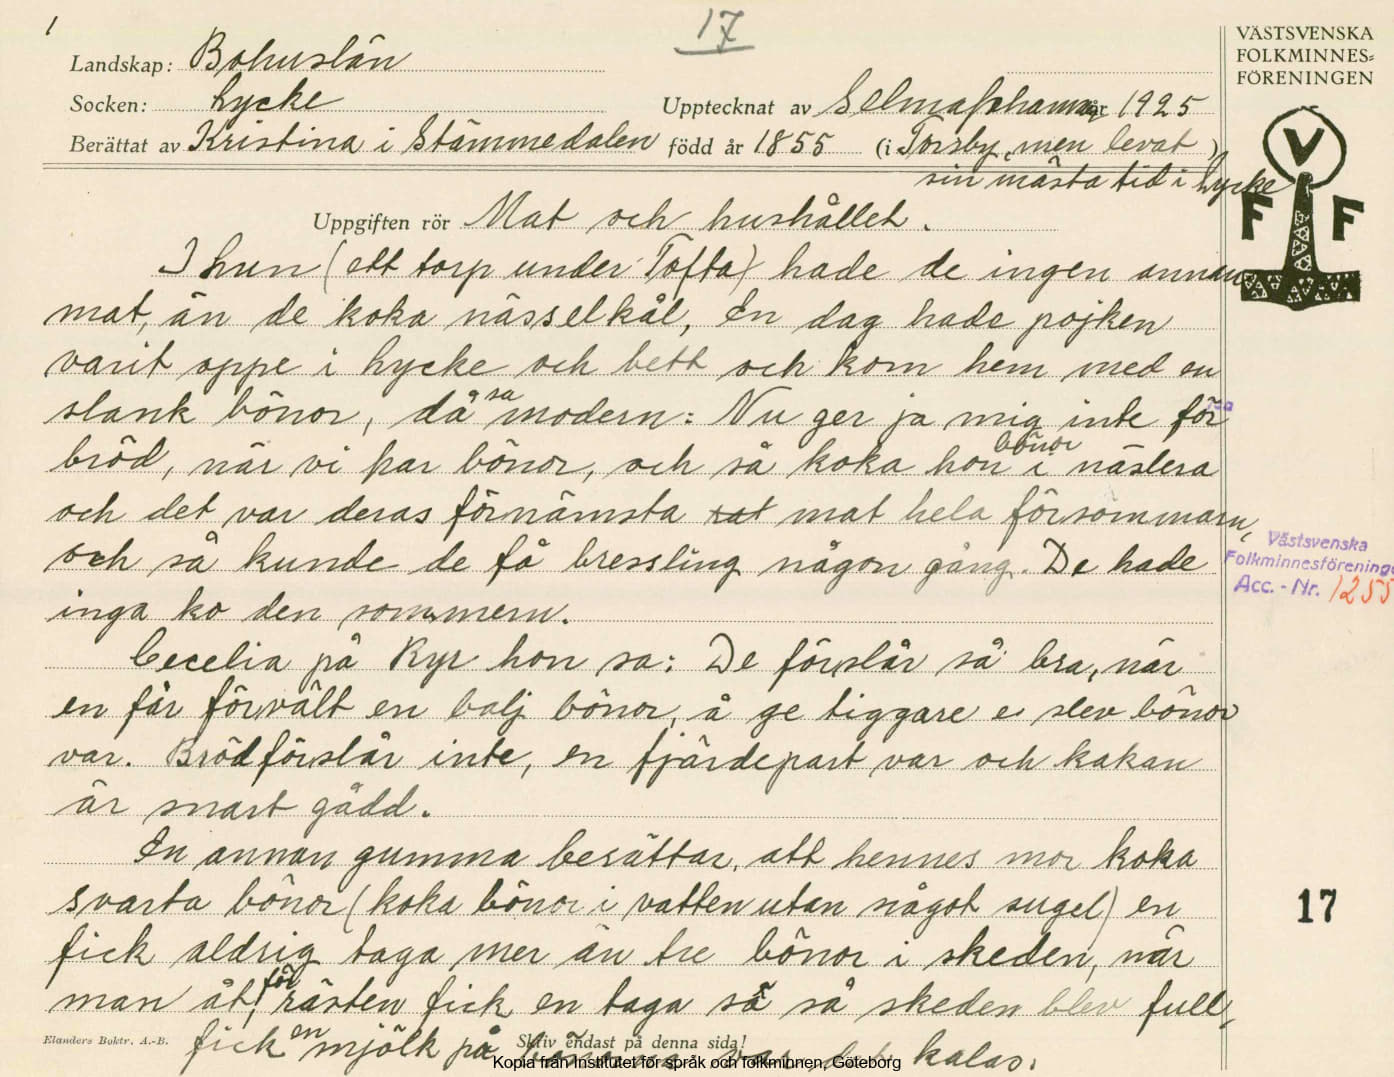 1
17
VÄSTSVENSKA
FOLKMINNES=
FÖRENINGEN
Landskap: Bohuslän
Socken: Lycke
Upptecknat av Selma Johansson år 1925
Berättat av Kristina i Stämmedalen född år 1855 (i Torsby, men levat )
sin mästa tid i Lycke
V
F F
Uppgiften rör Mat och hushållet.
I hun (ett torp under Tofta) hade de ingen annan
mat, än de koka nässelkål, En dag hade pojken
varit oppe i Lycke och bett och kom hem med en
slank bönor, då sa modern: Nu ger ja mig inte för
bröd, när vi har bönor, och så koka hon bönor i näslera
och det var deras förnämsta mat hela försommarn,
och så kunde de få bressling någon gång. De hade
inga ko den sommern.
Västsvenska
Folkminnesförening
Acc. - Nr. 1255
Cecelia på Kyr hon sa: De förslår så bra, när
en får förvält en balj bönor, å ge tiggare e slev bönor
var. Bröd förslår inte, en fjärdepart var och kakan
är snart gådd.
En annan gumma berättar, att hennes mor koka
svarta bönor (koka bönor i vatten utan något sugel) en
17
fick aldrig taga mer än tre bönor i skeden, när
man åt, för rästen fick en taga så så skeden blev full,
fick en mjölk på var kalas.
Elanders Boktr. A.-B.
Skriv endast på denna sida!
Kopia från Institutet för språk och folkminnen, Göteborg